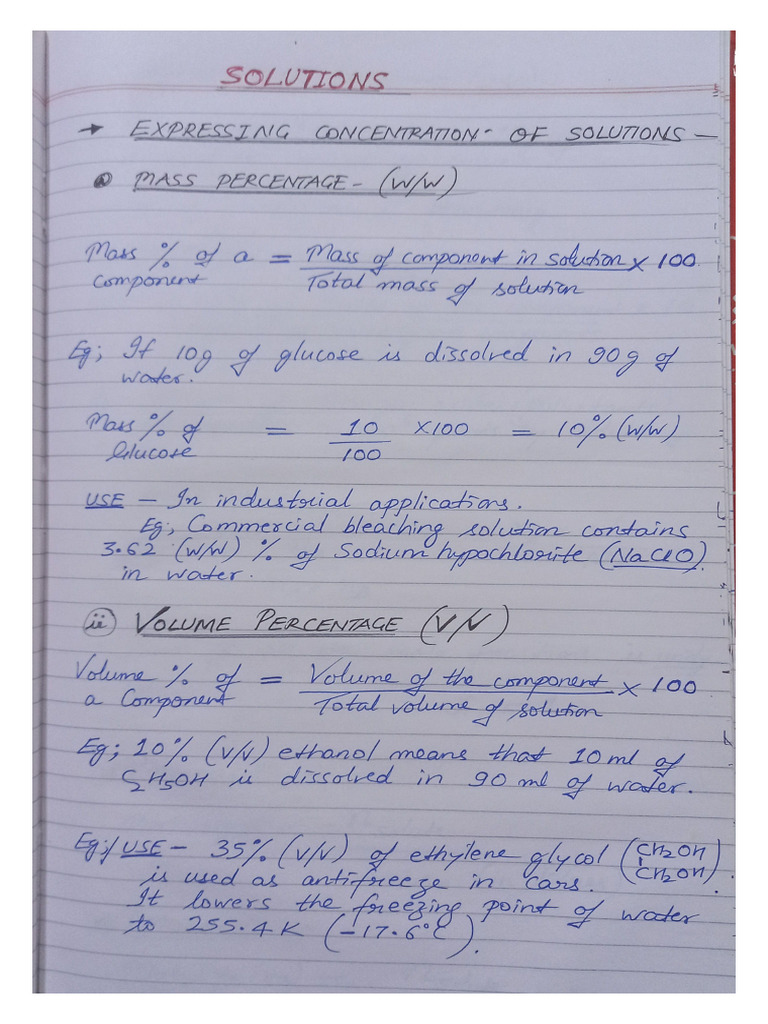 SOLUTIONS
→ EXPRESSING CONCENTRATION- OF SOLUTIONS —
MASS PERCENTAGE - (W/W)
Mass % of a = Mass of component in solution × 100
component Total mass of solution
Eg; If 10g of glucose is dissolved in 90g of
water.
Mass % of = 10 ×100 = 10% (W/W)
Glucose 100
USE - In industrial applications.
Eg; Commercial bleaching solution contains
3.62 (W/W) % of Sodium hypochlorite (NaClO)
in water.
(ii) VOLUME PERCENTAGE (V/V)
Volume % of = Volume of the component × 100
a Component Total volume of solution
Eg; 10% (V/V) ethanol means that 10 ml of
C2H5OH is dissolved in 90 ml of water.
Eg;/USE - 35% (V/V) of ethylene glycol (CH2OH
CH2OH).
is used as antifreeze in cars.
It lowers the freezing point of water
to 255.4 K (-17.6°C).